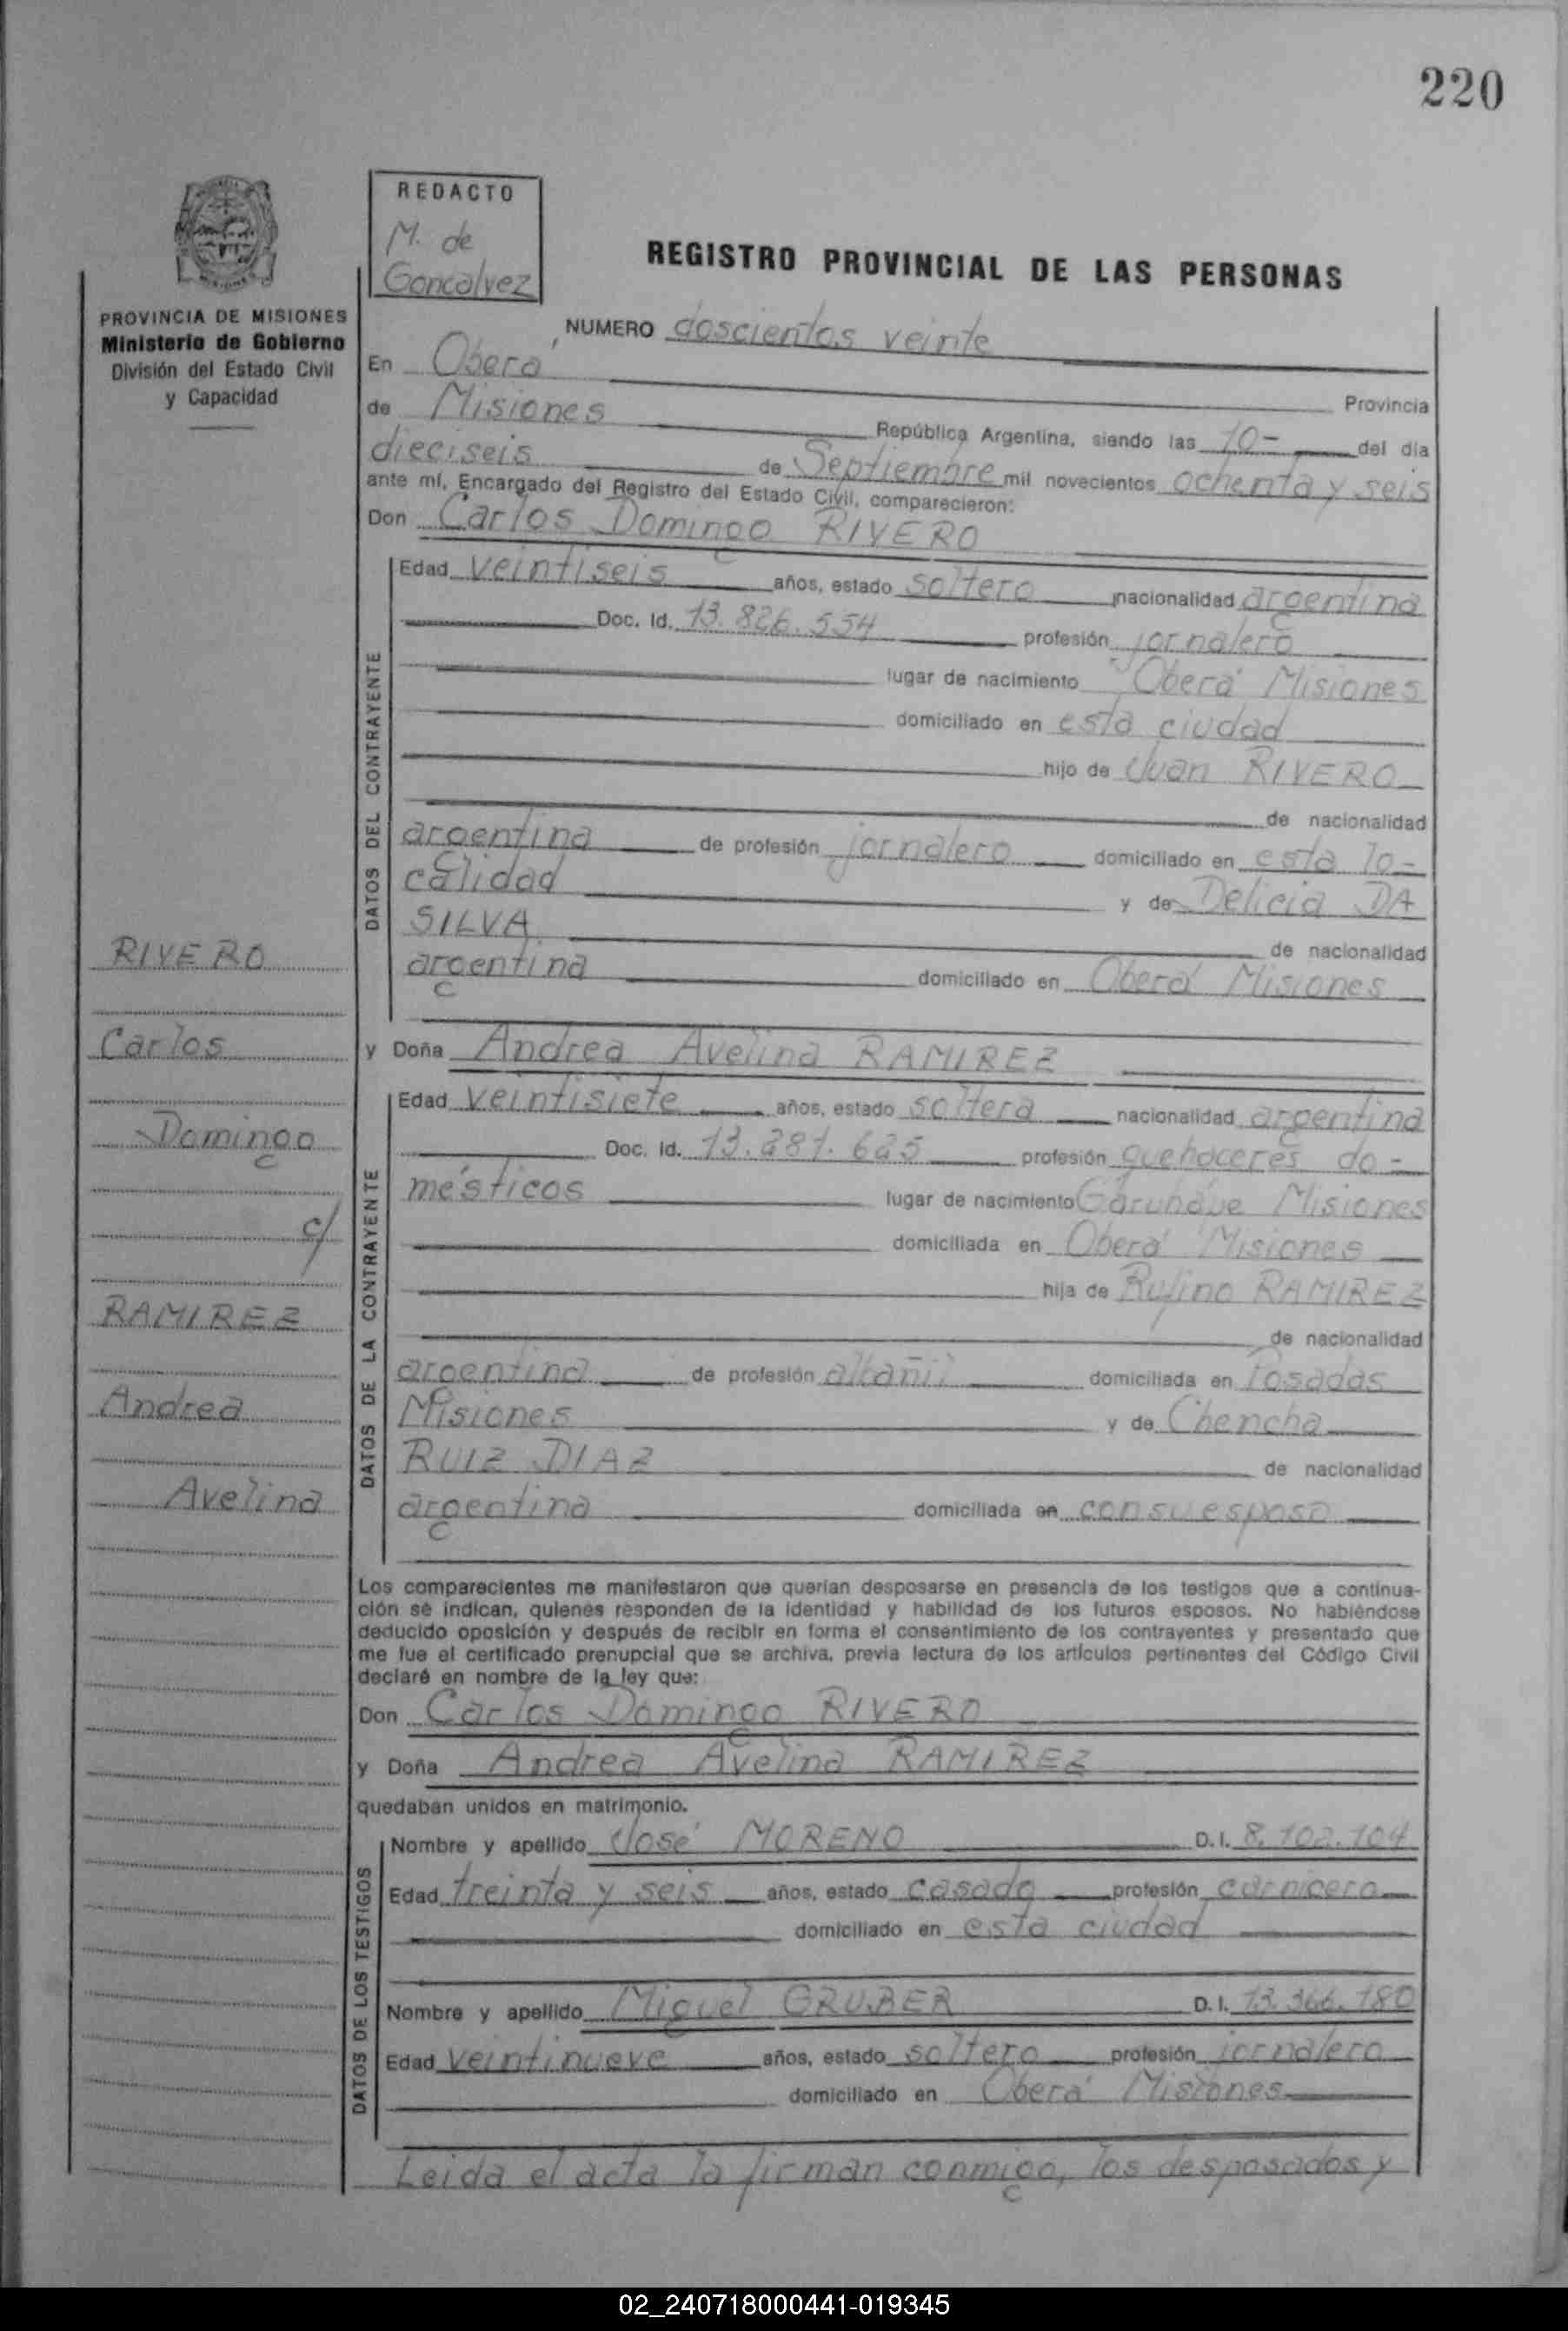 220
REDACTO
M. de
Goncalvez
REGISTRO PROVINCIAL DE LAS PERSONAS
PROVINCIA DE MISIONES
Ministerio de Gobierno
División del Estado Civil
y Capacidad
NUMERO doscientos veinte
En Oberá
Provincia
de Misiones República Argentina, siendo las 10- del día
dieciseis de Septiembre mil novecientos ochenta y seis
ante mí, Encargado del Registro del Estado Civil, comparecieron:
Don Carlos Domingo RIVERO
DATOS DEL CONTRAYENTE
Edad veintiseis años, estado soltero nacionalidad argentina
Doc. Id. 13.826.554 profesión jornalero
lugar de nacimiento Oberá Misiones
domiciliado en esta ciudad
hijo de Juan RIVERO
de nacionalidad
argentina de profesión jornalero domiciliado en esta lo-
calidad y de Delicia DA
SILVA de nacionalidad
argentina domiciliado en Oberá Misiones
y Doña Andrea Avelina RAMIREZ
DATOS DE LA CONTRAYENTE
Edad veintisiete años, estado soltera nacionalidad argentina
Doc. Id. profesión quehaceres do-
mésticos lugar de nacimiento Garuhape Misiones
domiciliada en Oberá Misiones
hija de Rufino RAMIREZ
de nacionalidad
argentina de profesión albañil domiciliada en Posadas
Misiones y de Chencha
RUIZ DIAZ de nacionalidad
argentina domiciliada en con su esposo
RIVERO
Carlos
Domingo
c/
RAMIREZ
Andrea
Avelina
Los comparecientes me manifestaron que querían desposarse en presencia de los testigos que a continua-
ción se indican, quienes responden de la identidad y habilidad de los futuros esposos. No habiéndose
deducido oposición y después de recibir en forma el consentimiento de los contrayentes y presentado que
me fue el certificado prenupcial que se archiva, previa lectura de los artículos pertinentes del Código Civil
declaré en nombre de la ley que:
Don Carlos Domingo RIVERO
y Doña Andrea Avelina RAMIREZ
quedaban unidos en matrimonio.
DATOS DE LOS TESTIGOS
Nombre y apellido José MORENO D.I. 8.102.104
Edad treinta y seis años, estado casado profesión carnicero
domiciliado en esta ciudad
Nombre y apellido Miguel GRUBER D.I. 13.366.180
Edad veintinueve años, estado soltero profesión jornalero
domiciliado en Oberá Misiones
Leida el acta la firman conmigo, los desposados y
02_240718000441-019345